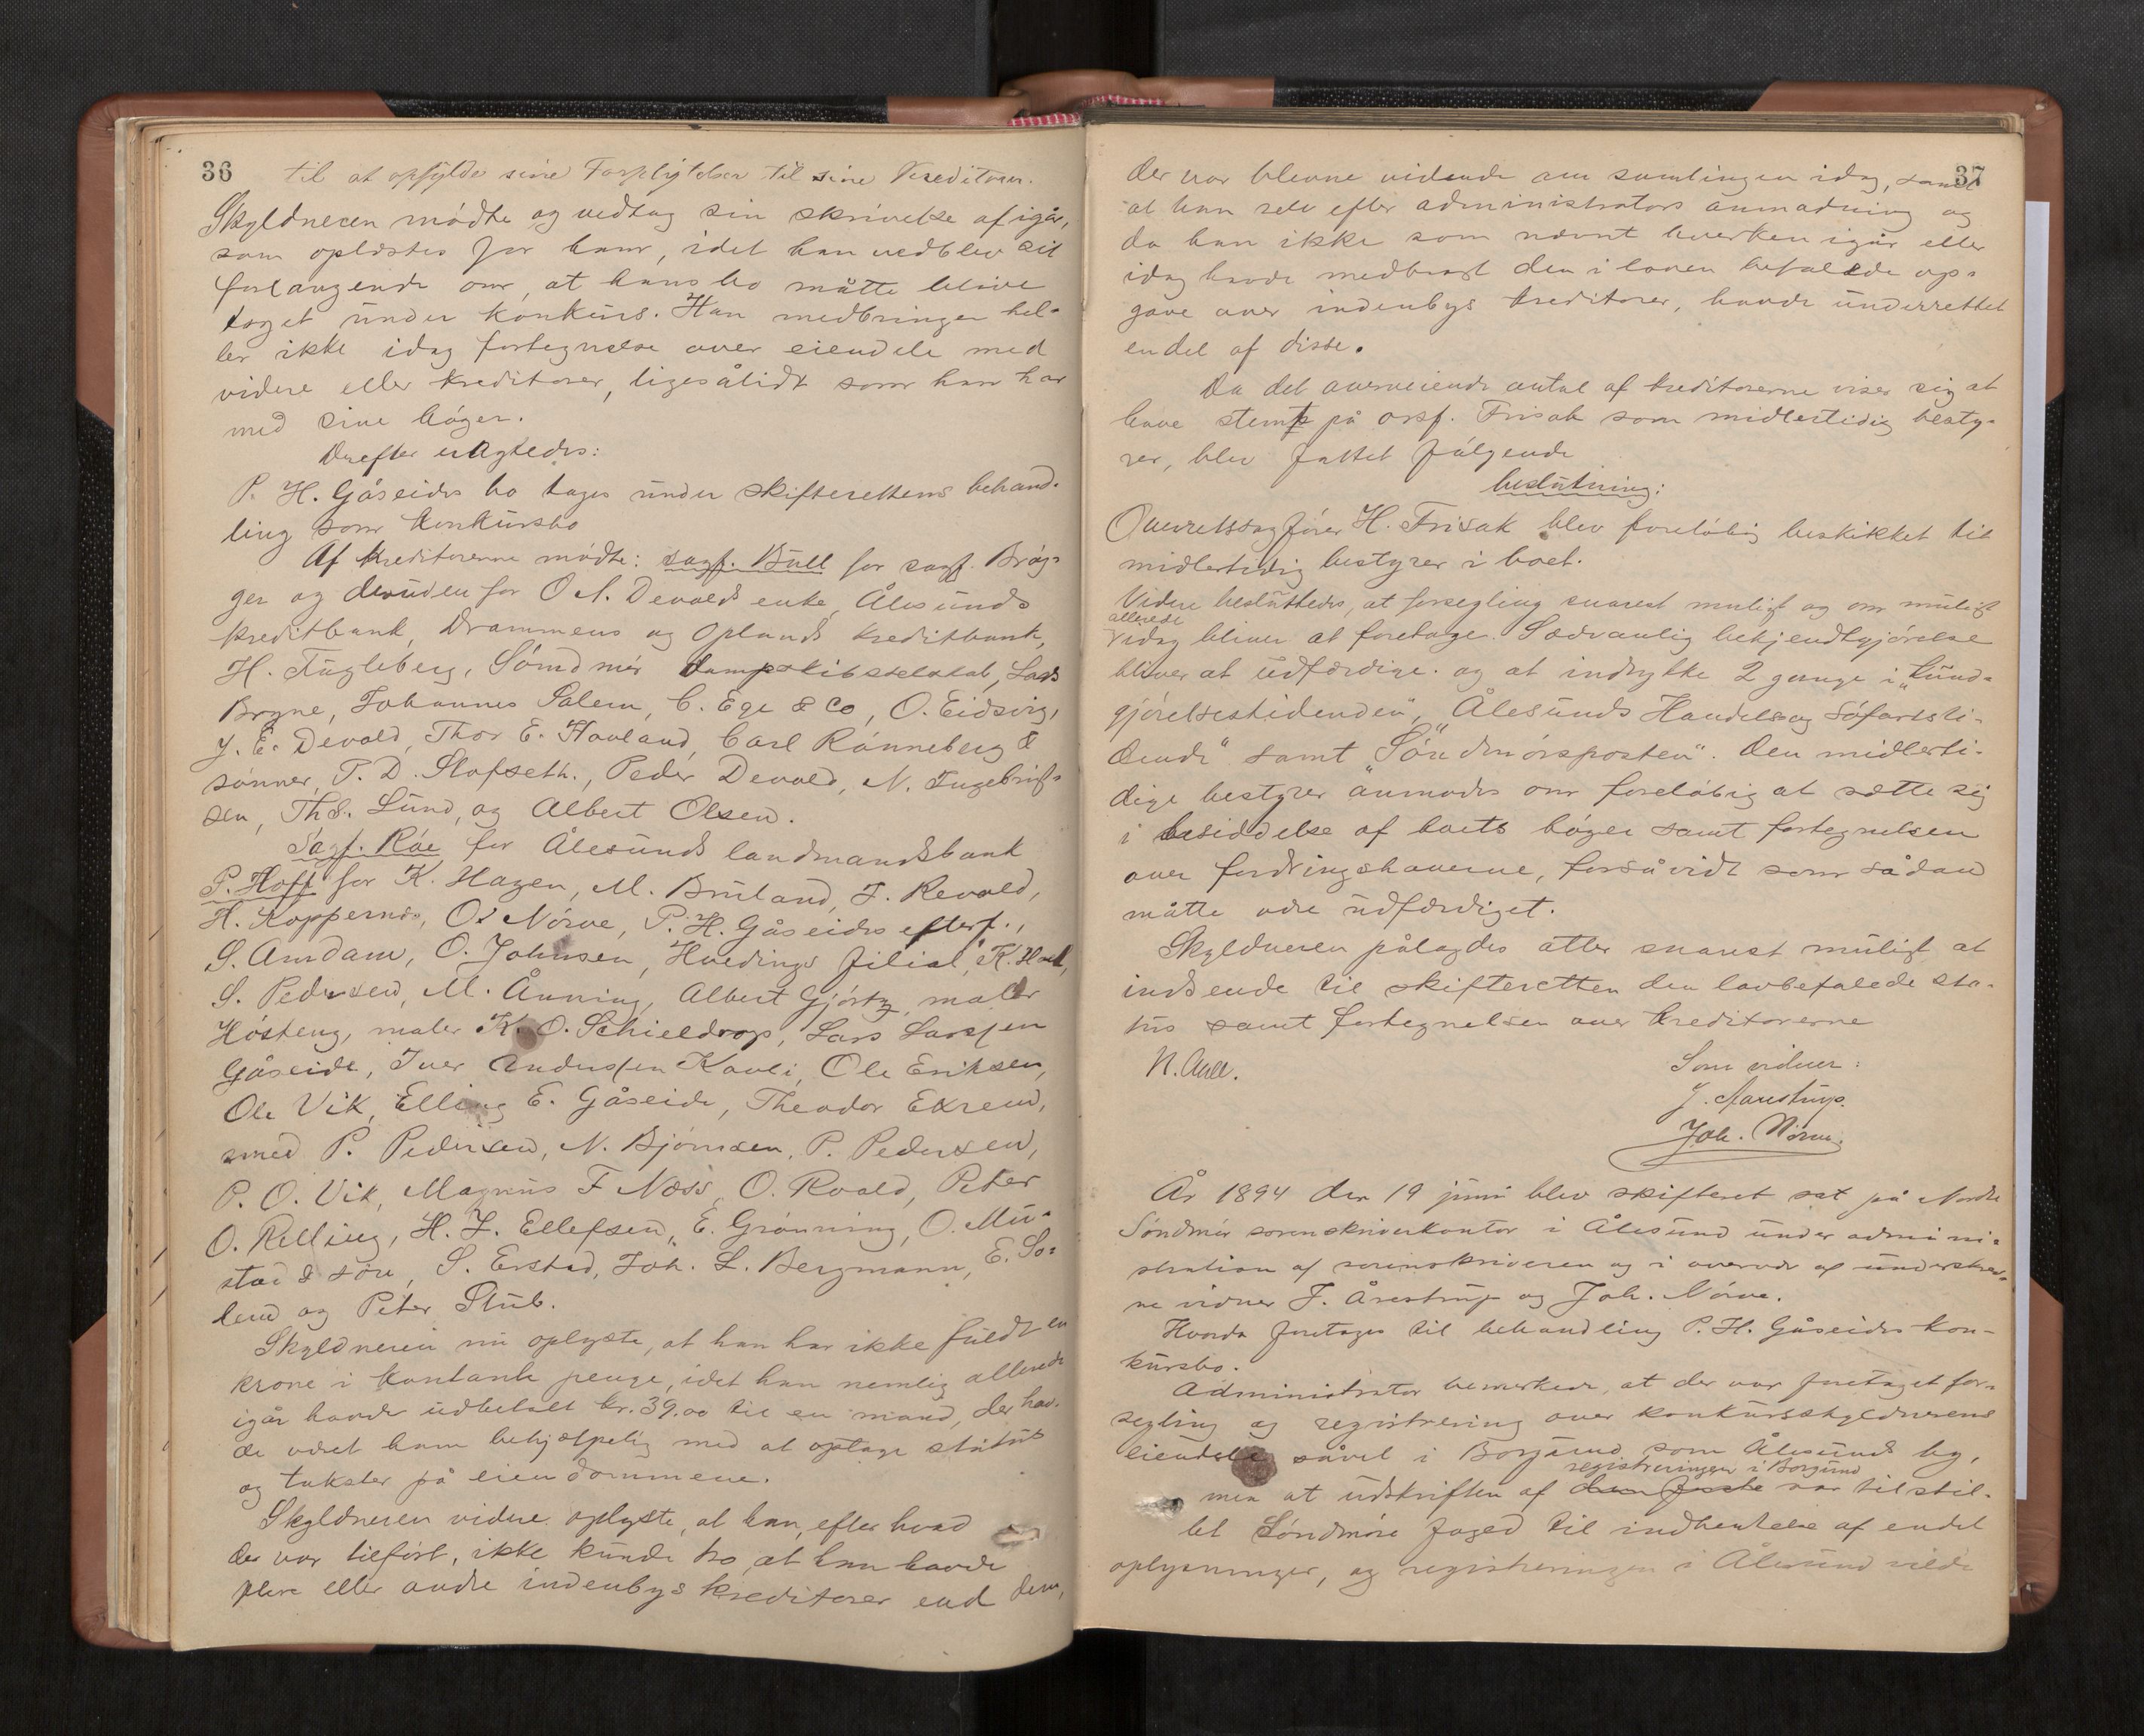 36
til at opfylde sine Forpligtelser til sine Kreditorer.
Skyldneren mødte og vedtog sin skrivelse af igår,
som oplæstes for ham, idet han vedblev sit
forlangende om, at hans bo måtte blive
taget under konkurs. Han medbringer hel-
ler ikke idag fortegnelse over eiendele med
videre eller kreditorer, ligesålidt som han har
med sine bøger.
Derefter vedtoges:
P. H. Gåseides bo tages under skifterettens behand-
ling som konkursbo
Af kreditorerne mødte: sagf. Bull for sagf. Brøg-
ger og desuden for O A. Devolds enke, Ålesunds
kreditbank, Drammens og Oplands kreditbank,
H. Fugleberg, Sömdmör dampskibsselskab, Lars
Bryne, Johannes Salem, C. Ege & Co, O. Eidsvig,
J. E. Devold, Thor E. Hovland, Carl Rønneberg &
sønner, P. D. Slofseth., Peder Devold, N. Ingebrigt-
sen, Ths. Lund, og Albert Olsen.
Sagf. Røe for Ålesunds landmandsbank
P. Hoff for K. Hagen, M. Bruland, J. Revold,
H. Koppernæs, O. Nörve, P. H. Gåseides efterf.,
S. Amdam, O. Johnsen, Hvedings filial, K. Hall,
S. Pedersen, M. Ånning, Albert Gjörtz, maler
Hösteng, maler K. O. Schieldrop, Lars Larssen
Gåseide, Iver Anderssen Kavli, Ole Eriksen,
Ole Vik, Elling E. Gåseide, Theodor Exrem,
smed P. Pedersen, N. Bjørnsen, P. Pedersen,
P. O. Vik, Magnus F Næss, O. Roald, Peter
O. Relling, H. L. Ellefsen, E. Grønning, O. Mu-
stad & søn, S. Erstad, Joh. L. Bergmann, E. So-
lem og Peter Stub.
Skyldneren nu oplyste, at han har ikke fuldt en
krone i kontante penge, idet han nemlig allerede
igår havde udbetalt kr. 39.00 til en mand, der hav-
de været ham behjælpelig med at optage status
og takster på eiendommene.
Skyldneren videre oplyste, at han, efter hvad
der var tilført, ikke kunde tro, at han havde
flere eller andre indenbys kreditorer end dem,
37
der var blevne vidende om samlingen idag, samt
at han selv efter administrators anmodning og
da han ikke som nævnt hverken igår eller
idag havde medbragt den i loven befalede op-
gave over indenbys kreditorer, havde underrettet
endel af disse.
Da det overveiende antal af kreditorerne viser sig at
have stemt på orsf. Frisak som midlertidig besty-
rer, blev fattet følgende
beslutning:
Overretssagfører H. Frisak blev foreløbig beskikket til
midlertidig bestyrer i boet.
Videre besluttedes, at forsegling snarest muligt og om muligt
allerede
idag bliver at foretage. Sædvanlig bekjendtgjørelse
bliver at udfærdige og at indrykke 2 gange i „Kund-
gjørelsestidenden“, „Ålesunds Handels og Søfartsti-
dende“ samt „Søndmørsposten“. Den midlerti-
dige bestyrer anmodes om foreløbig at sætte sig
i besiddelse af boets bøger samt fortegnelsen
over fordringshaverne, forsåvidt som sådan
måtte være udfærdiget.
Skyldneren pålagdes atter snarest muligt at
indsende til skifteretten den lovbefalede sta-
tus samt fortegnelsen over kreditorerne
N. Aall.
Som vidner:
J. Aarestrup.
Joh. Nörve.
År 1894 den 19 juni blev skifteret sat på Nordre
Søndmør sorenskriverkontor i Ålesund under admini-
stration af sorenskriveren og i overvær af underskrev-
ne vidner J. Årestrup og Joh. Nörve.
Hvorda foretages til behandling P. H. Gåseides kon-
kursbo.
Administrator bemerkede, at der var foretaget for-
segling og registrering over konkursskyldnerens
eiendele såvel i Borgund som Ålesunds by,
registreringen i Borgund
men at udskriften af den første var tilstil-
let Søndmøre foged til indhentelse af endel
oplysninger, og registreringen i Ålesund vilde